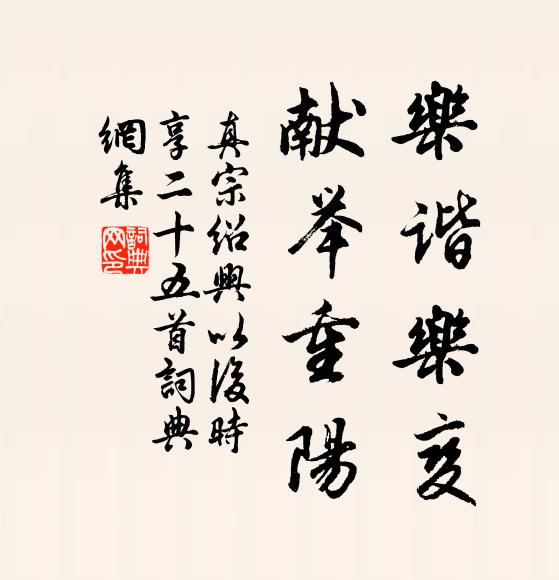 樂諧樂变
献举重陽
真宗紹興以後時
享二十五首詞典
網集
詞典网印